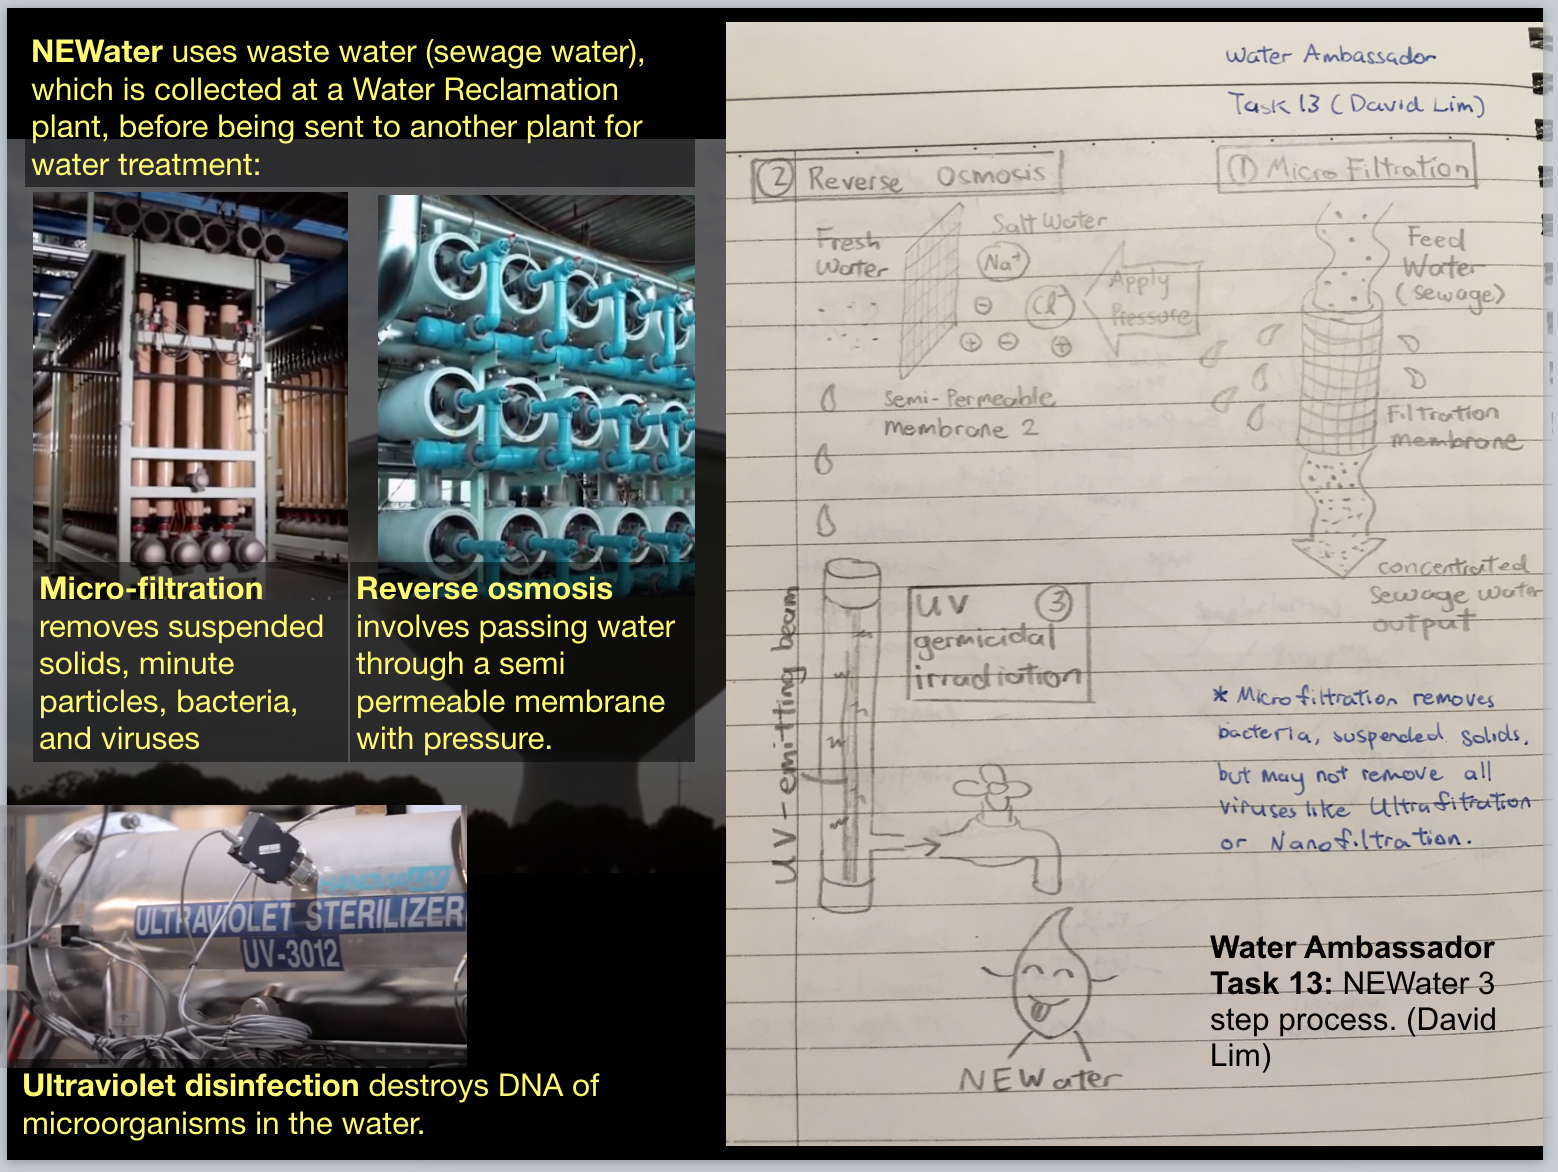 NEWater uses waste water (sewage water),
which is collected at a Water Reclamation
plant, before being sent to another plant for
water treatment:
Micro-filtration
removes suspended
solids, minute
particles, bacteria,
and viruses
Reverse osmosis
involves passing water
through a semi
permeable membrane
with pressure.
ULTRAVIOLET STERILIZER
UV-3012
Ultraviolet disinfection destroys DNA of
microorganisms in the water.
Water Ambassador
Task 13 (David Lim)
② Reverse Osmosis
① Micro Filtration
Fresh
Water
Salt Water
Na⁺
Cl⁻
⊖
⊕ ⊖ ⊕
Apply
Pressure
Semi-Permeable
membrane 2
Feed
Water
(sewage)
Filtration
membrane
concentrated
sewage water
output
UV ③
germicidal
irradiation
UV-emitting beam
* Microfiltration removes
bacteria, suspended solids,
but may not remove all
viruses like Ultrafitration
or Nanofiltration.
NEWater
Water Ambassador
Task 13: NEWater 3
step process. (David
Lim)